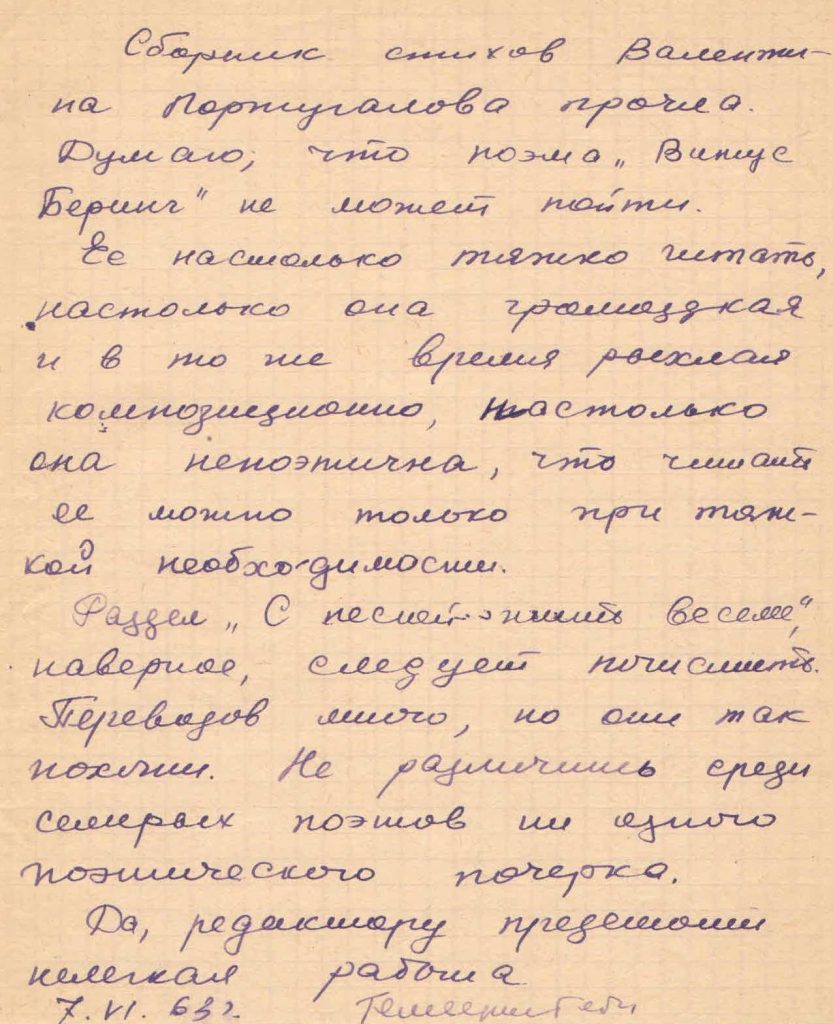 Сборник стихов Валенти-
на Португалова прочла.
Думаю, что поэма „Витус
Беринг" не может пойти.
Ее настолько тяжко читать,
настолько она громоздкая
и в то же время рыхлая
композиционно, настолько
она непоэтична, что читать
ее можно только при тяж-
кой необходимости.
Раздел „С песней жить веселе",
наверное, следует почистить.
Переводов много, но они так
похожи. Не различишь среди
семерых поэтов ни одного
поэтического почерка.
Да, редактору предстоит
нелегкая работа
7.VI.63г.